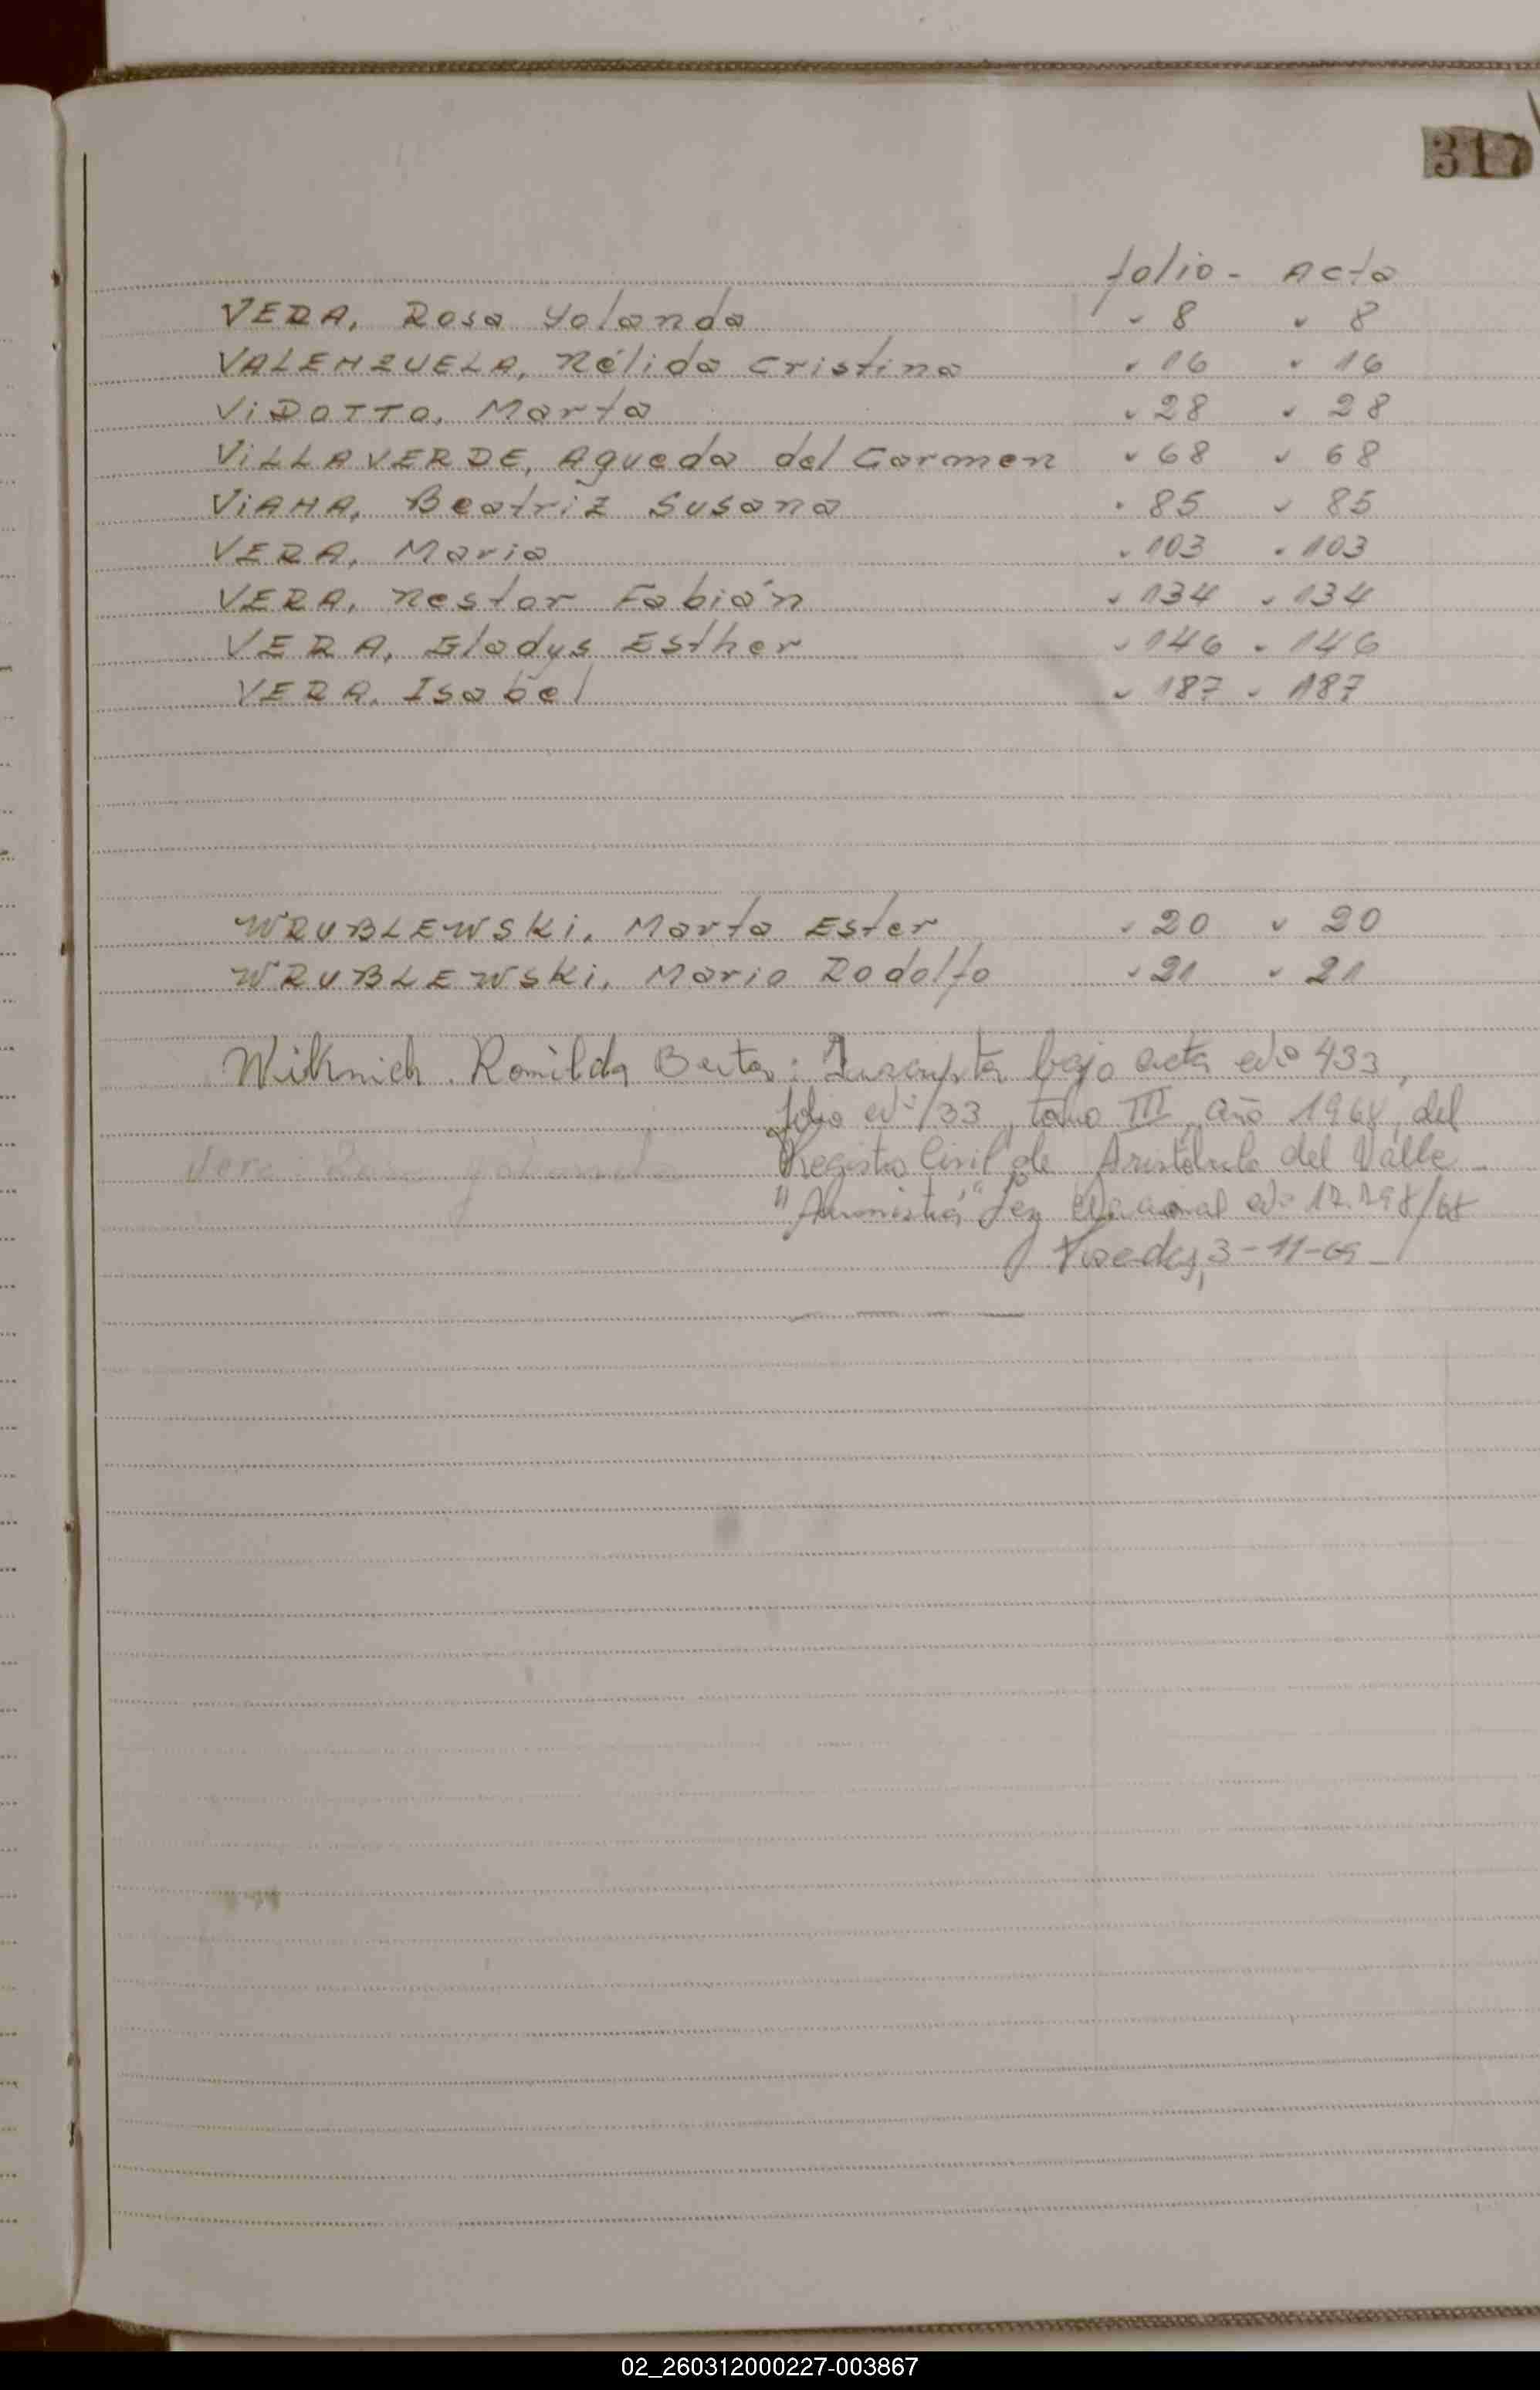 317
folio - Acta
VERA, Rosa Yolanda 8 8
VALENZUELA, Nélida Cristina 16 16
ViDOTTO, Marta 28 28
ViLLAVERDE, Agueda del Carmen 68 68
ViANA, Beatriz Susana 85 85
VERA, Maria 103 103
VERA, Nestor Fabián 134 134
VERA, Gladys Esther 146 146
VERA, Isabel 187 187
WRUBLEWSKi, Marta Ester 20 20
WRUBLEWSKi, Mario Rodolfo 21 21
Romilda Berta: Inscripta bajo acta Nº 433,
folio Nº 133, tomo III, año 1968, del
Registro Civil de Aristóbulo del Valle -
"Amnistía" Ley Nacional Nº
3-11-69_
02_260312000227-003867